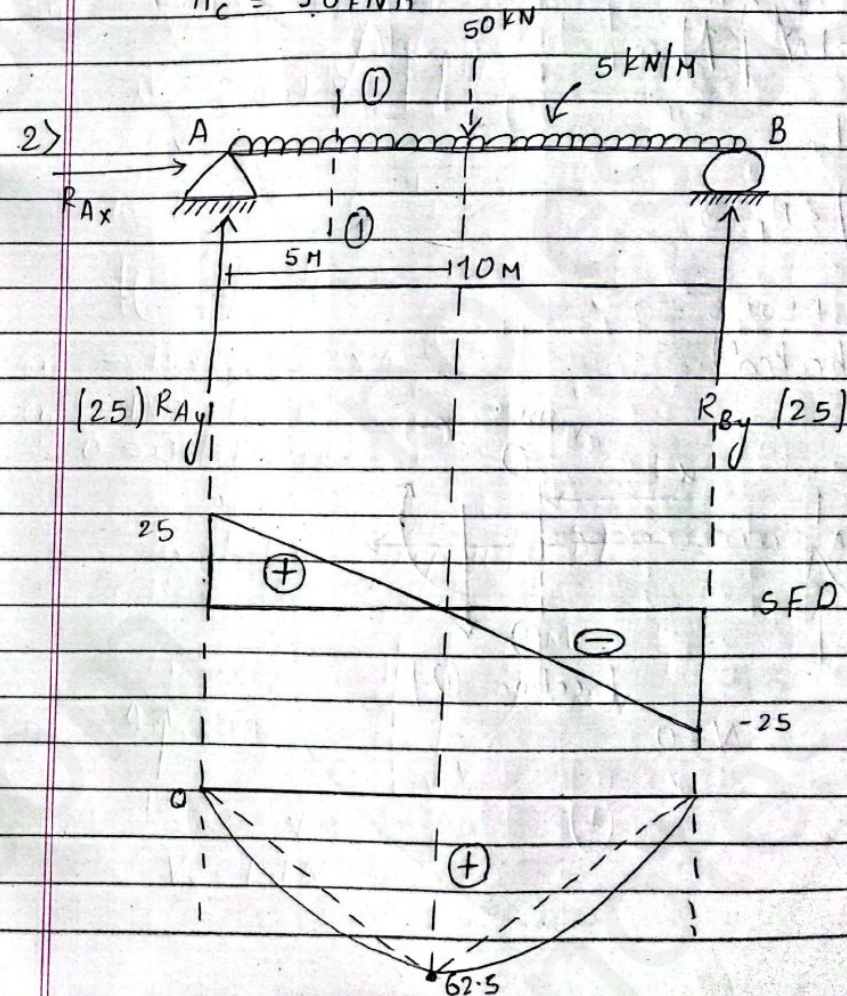 = 50 KNM
50 KN
① 5 KN/M
2> A B
RAx
①
5M 10 M
(25) RAy RBy (25)
25
+ SFD
−
-25
0
+
62.5